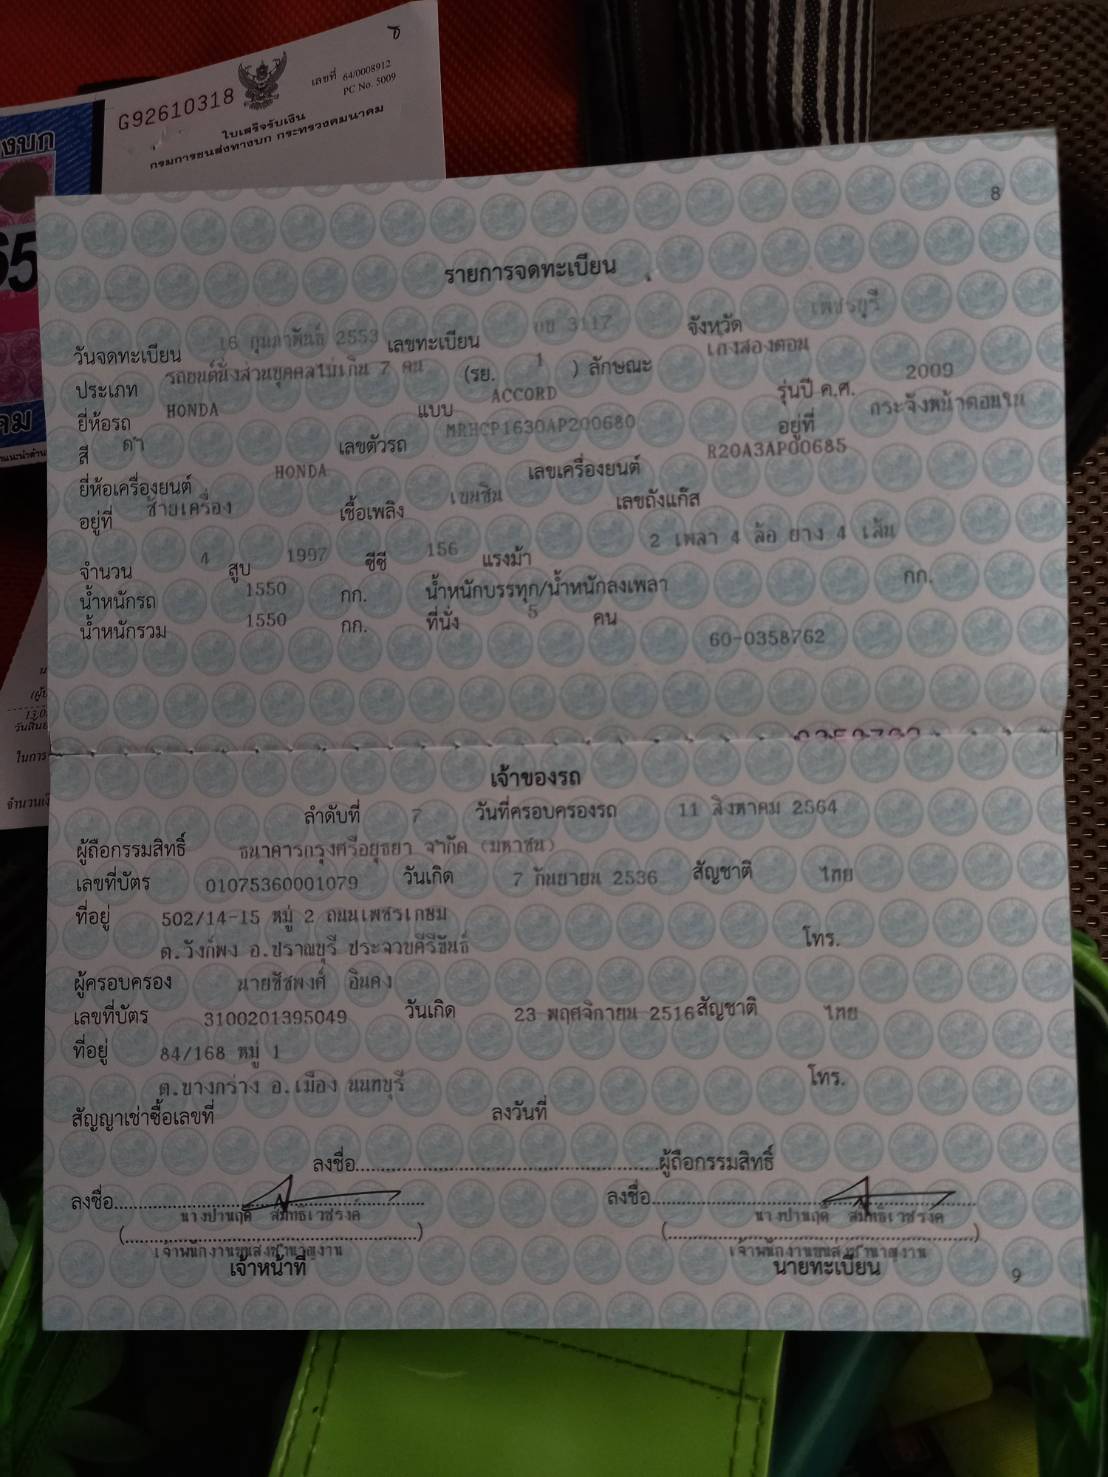 G92610318
เลขที่ 64/0008912
PC No. 5009
ใบเสร็จรับเงิน
กรมการขนส่งทางบก กระทรวงคมนาคม
งบก
65
คม
8
รายการจดทะเบียน
วันจดทะเบียน 16 กุมภาพันธ์ 2553 เลขทะเบียน 3117 จังหวัด เพชรบุรี
ประเภท รถยนต์นั่งส่วนบุคคลไม่เกิน 7 คน (รย. 1 ) ลักษณะ เก๋งสองตอน
ยี่ห้อรถ HONDA แบบ ACCORD รุ่นปี ค.ศ. 2009
สี ดำ เลขตัวรถ MRHCP1630AP200680 อยู่ที่ กระจังหน้าตอนใน
ยี่ห้อเครื่องยนต์ HONDA เลขเครื่องยนต์ R20A3AP00685
อยู่ที่ ซ้ายเครื่อง เชื้อเพลิง เบนซิน เลขถังแก๊ส
จำนวน 4 สูบ 1997 ซีซี 156 แรงม้า 2 เพลา 4 ล้อ ยาง 4 เส้น
น้ำหนักรถ 1550 กก. น้ำหนักบรรทุก/น้ำหนักลงเพลา กก.
น้ำหนักรวม 1550 กก. ที่นั่ง 5 คน
60-0358762
เจ้าของรถ
ลำดับที่ 7 วันที่ครอบครองรถ 11 สิงหาคม 2564
ผู้ถือกรรมสิทธิ์ ธนาคารกรุงศรีอยุธยา จำกัด (มหาชน)
เลขที่บัตร 01075360001079 วันเกิด 7 กันยายน 2536 สัญชาติ ไทย
ที่อยู่ 502/14-15 หมู่ 2 ถนนเพชรเกษม
ต.วังก์พง อ.ปราณบุรี ประจวบคีรีขันธ์ โทร.
ผู้ครอบครอง นายชัชพงศ์ อินคง
เลขที่บัตร 3100201395049 วันเกิด 23 พฤศจิกายน 2516 สัญชาติ ไทย
ที่อยู่ 84/168 หมู่ 1
ต.บางกร่าง อ.เมือง นนทบุรี โทร.
สัญญาเช่าซื้อเลขที่ ลงวันที่
ลงชื่อ ผู้ถือกรรมสิทธิ์
ลงชื่อ ลงชื่อ
เจ้าหน้าที่ นายทะเบียน
9